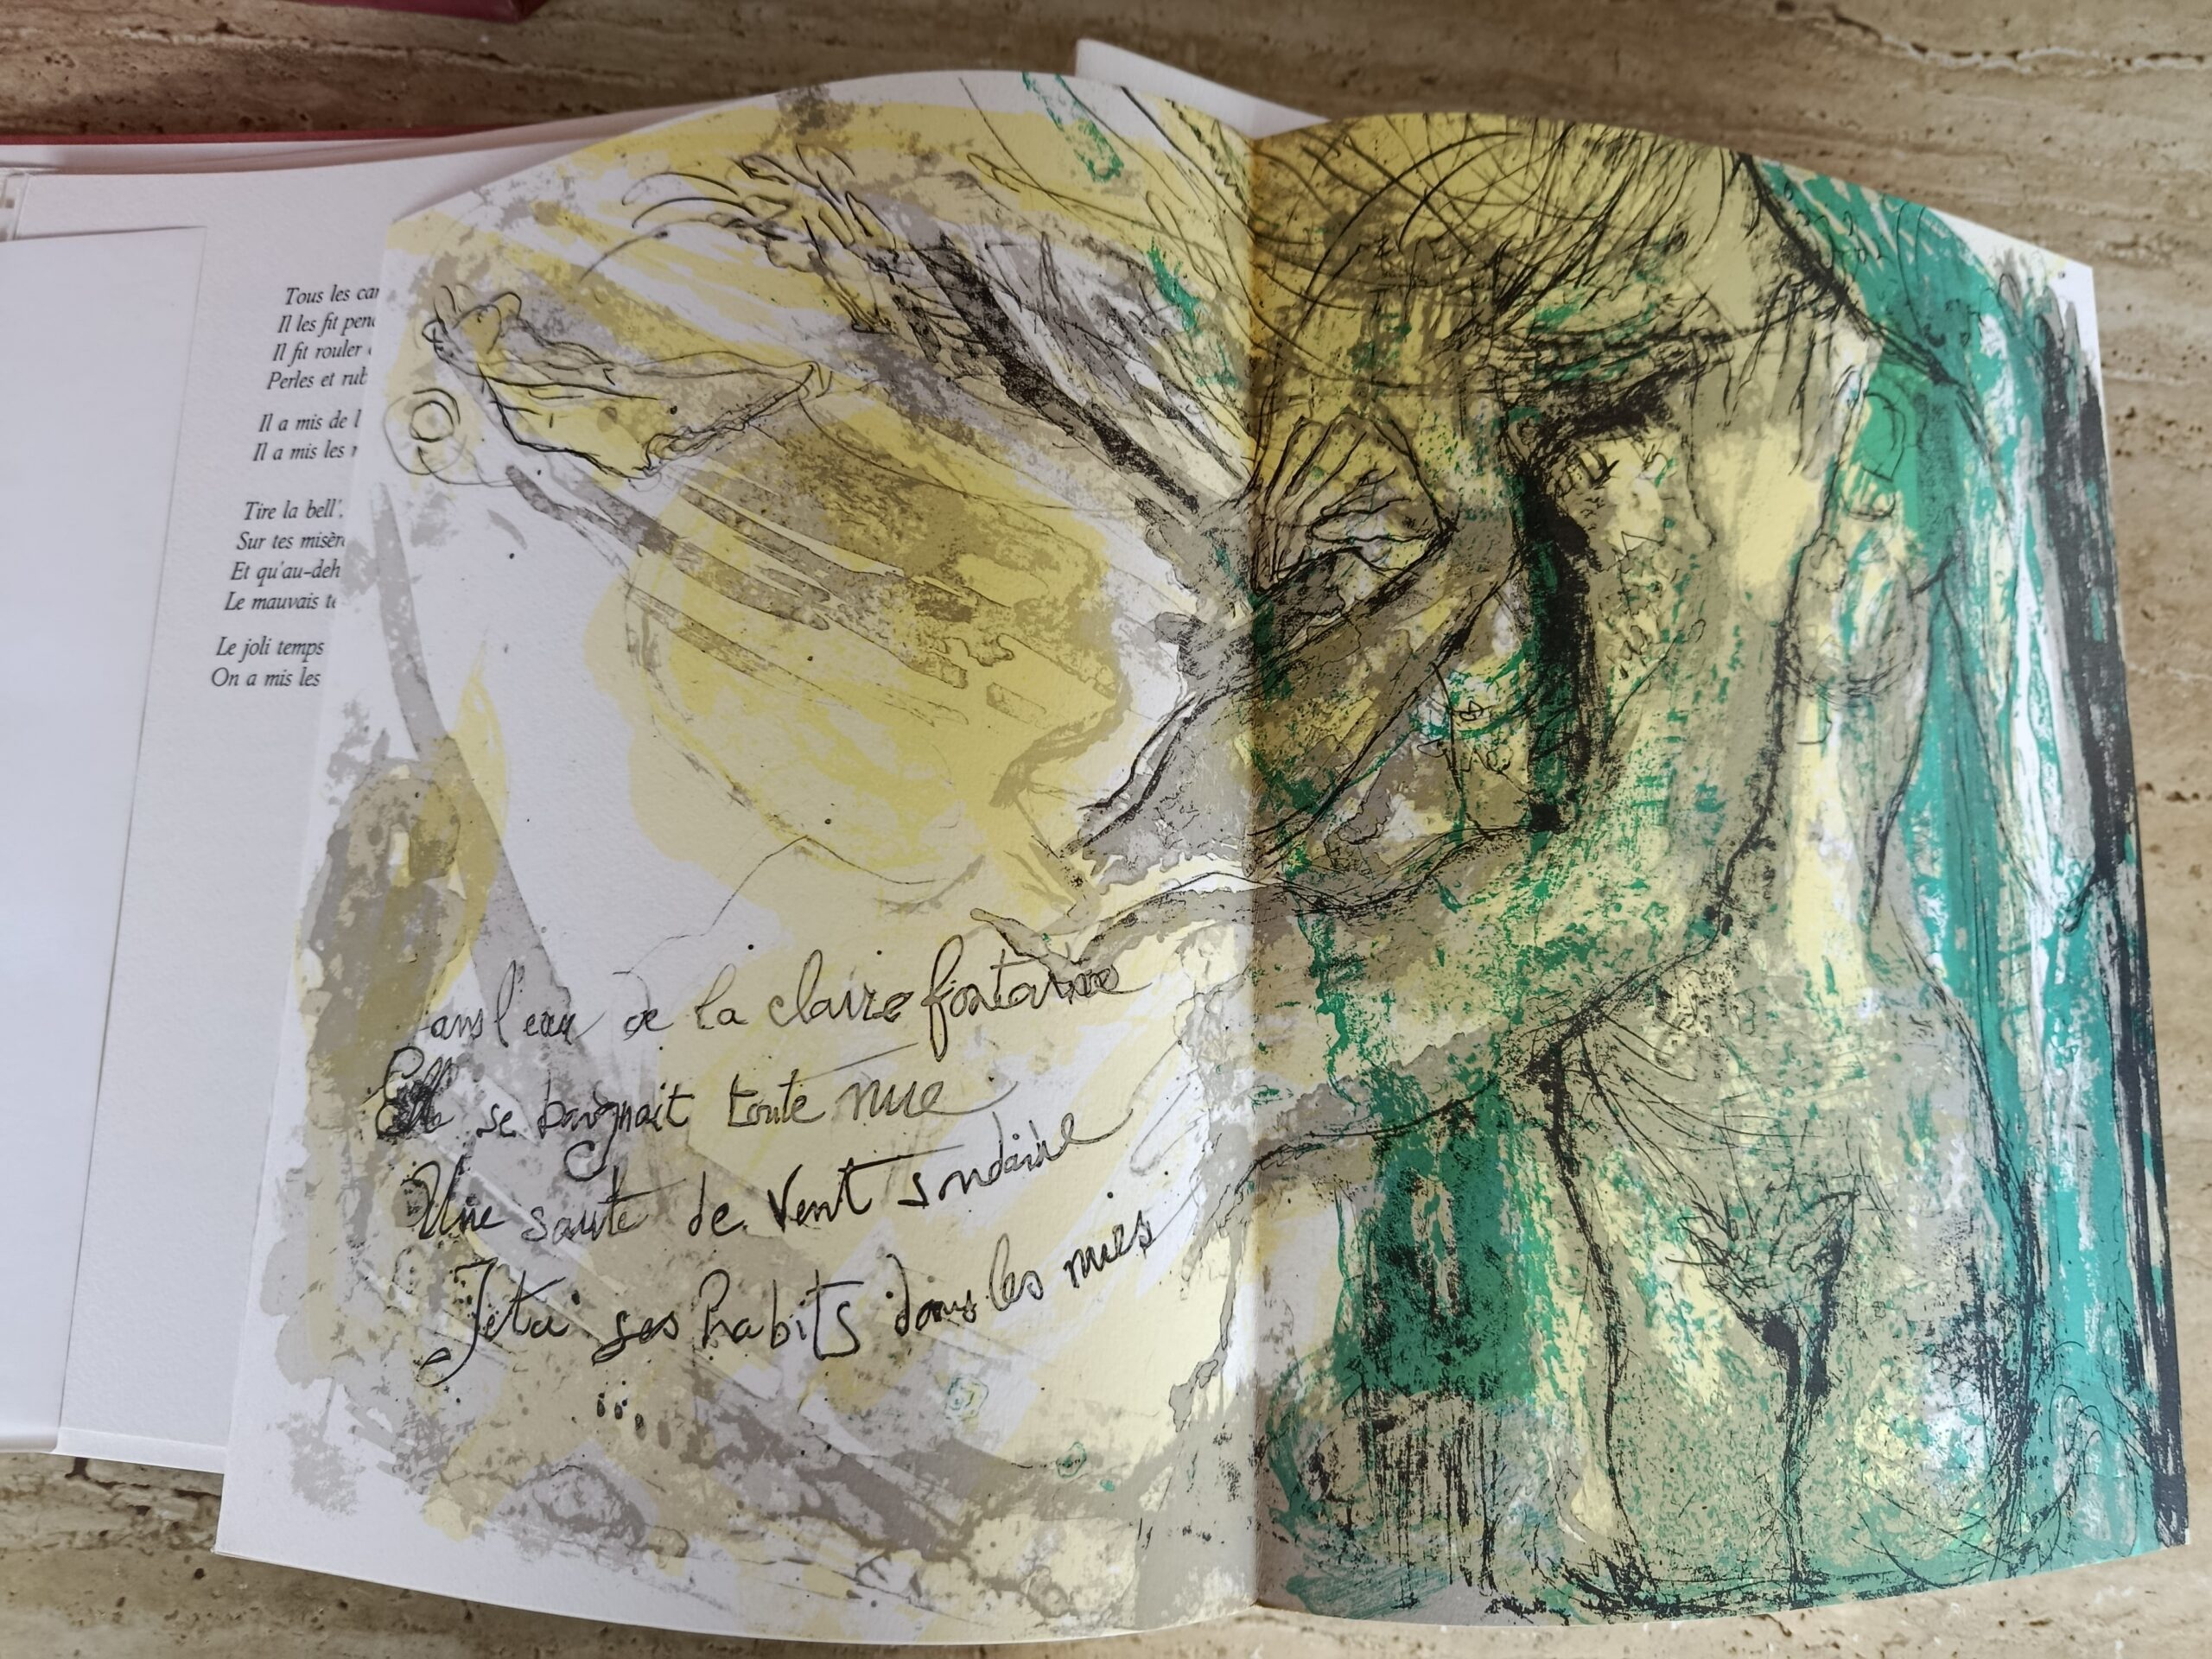 Tous les car
Il les fit pend
Il fit rouler
Perles et rub
Il a mis de l
Il a mis les r
Tire la bell'
Sur tes misèr
Et qu'au-deh
Le mauvais te
Le joli temps
On a mis les
ans l'eau de la claire fontaine
Elle se baignait toute nue
Une saute de vent soudaine
Jeta ses habits dans les nues